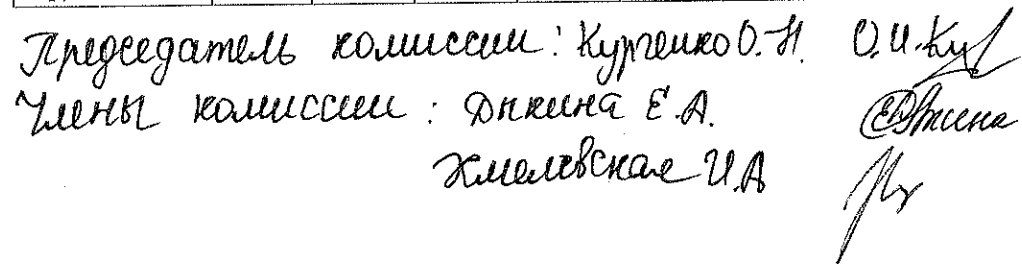 Председатель комиссии: Курченко О.Н. О.Н.Кур
Члены комиссии: Дякина Е.А.
Хмелевская И.А